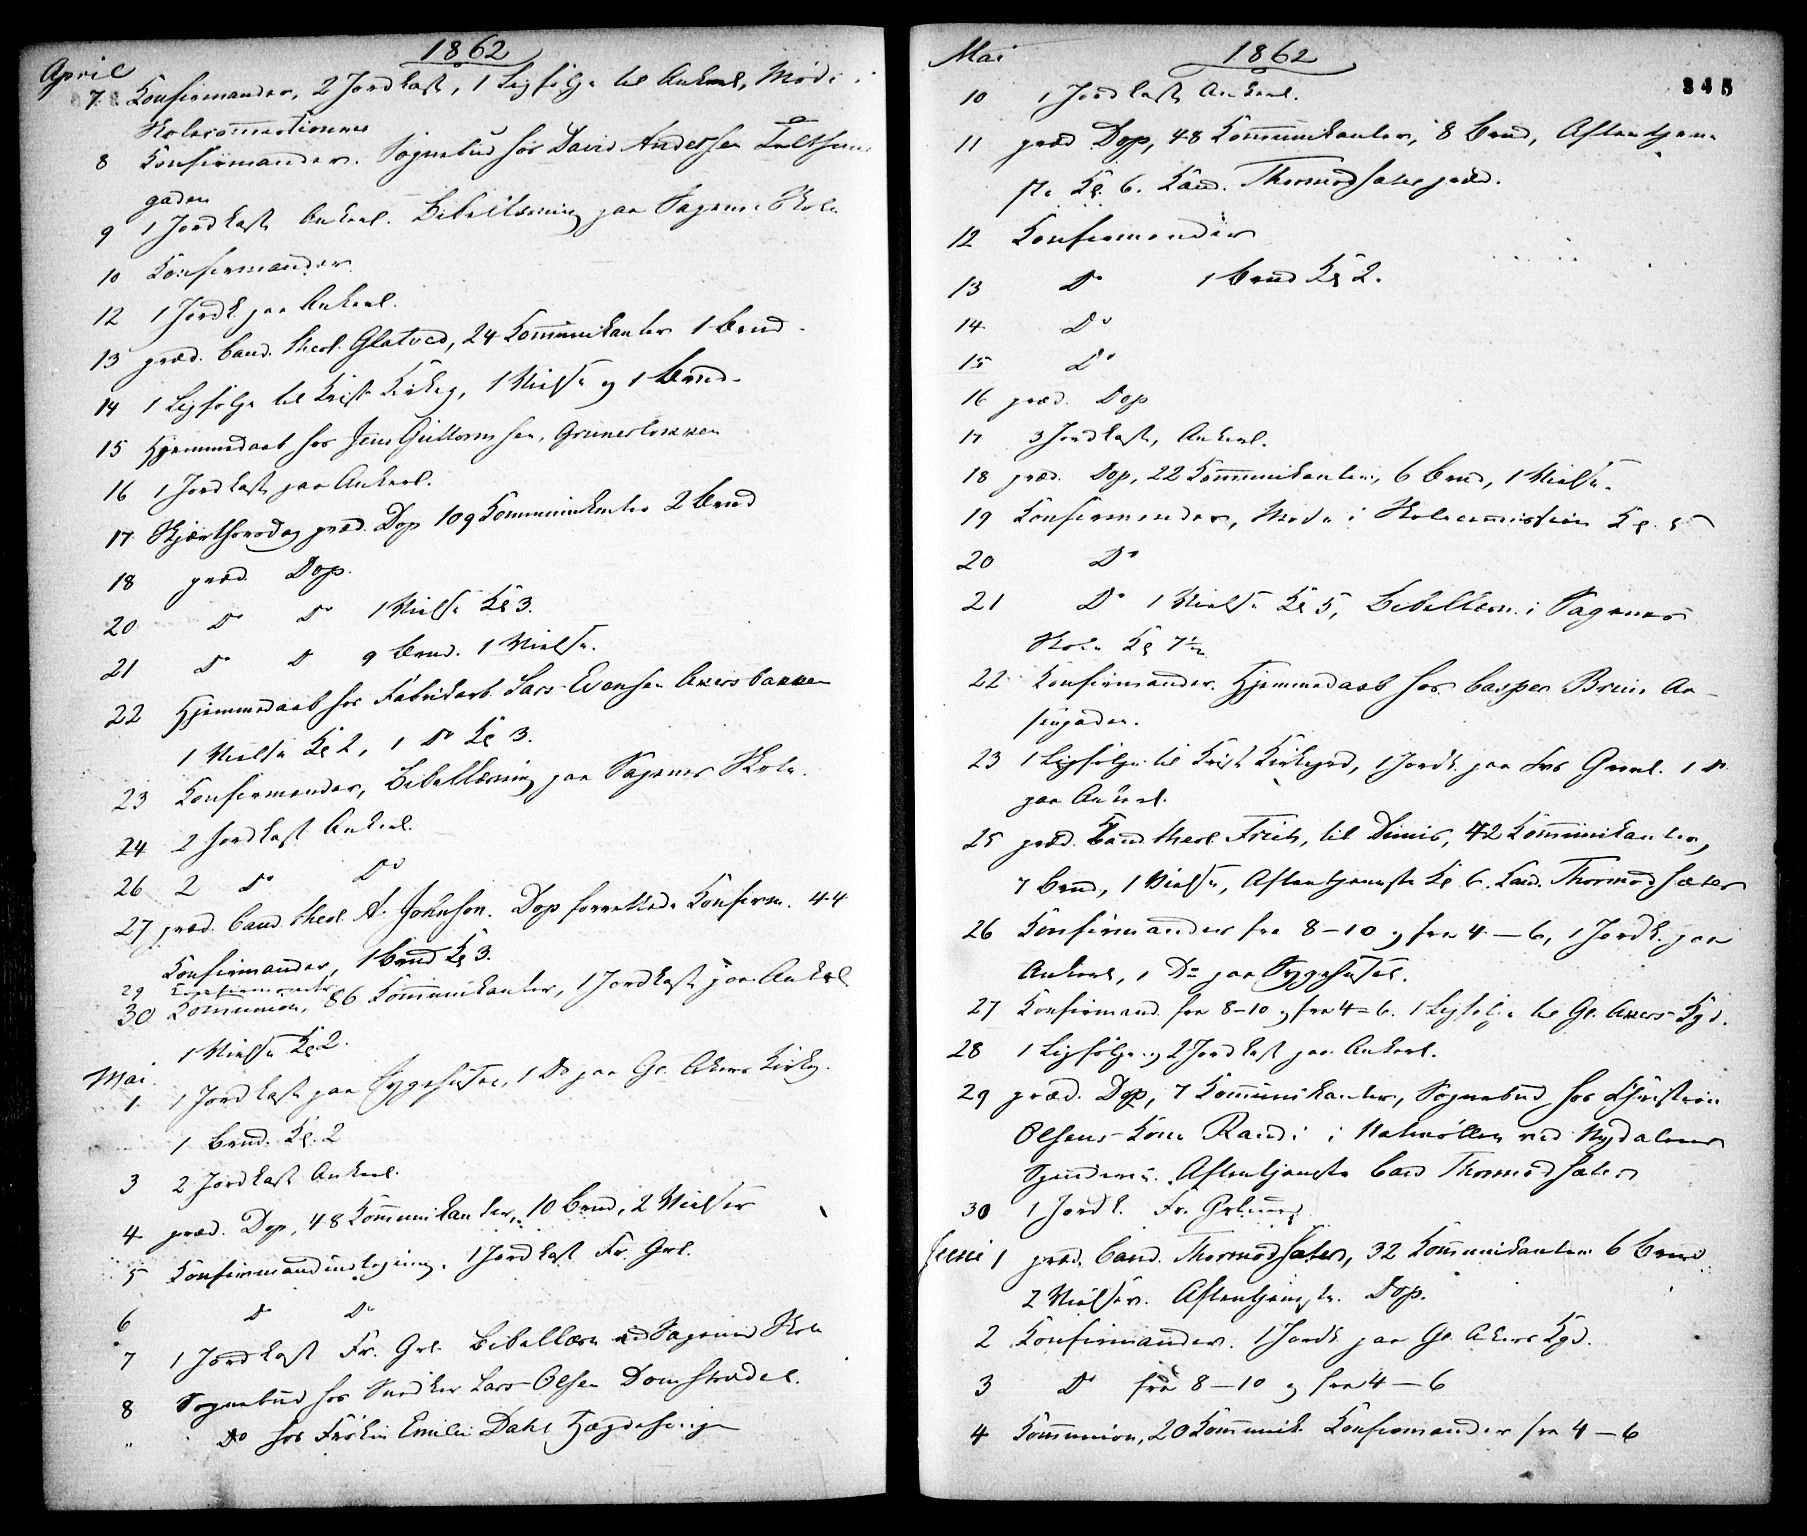 1862
April
7. Konfirmander, 2 Jordkast, 1 Ligfølge til Ankerl, Møde i
Skolecommissionen
8 Konfirmander. Sognebud hos David Andersen
gaden
9 1 Jordkast Ankerl. Bibellæsning paa Sagene Skole
10 Konfirmander
12 1 Jordk. paa Ankerl.
13 præd. Cand. theol. Glatved, 24 Kommunikanter 1 Brud.
14 1 Ligfølge til Krist Kirkeg, 1 Vielse og 1 Brud.
15 Hjemmedaab hos Jens Guttormsen, Grünerløkken
16 1 Jordkast paa Ankerl.
17 Skjærthorsdag præd. Dop 109 Kommunikanter 2 Brud
18 præd. Dop.
20 Do Do 1 Vielse Kl 3.
21 Do D 9 Brud. 1 Vielse.
22 Hjemmedaab hos Fabrikarb. Lars Evensen Akersbakken
1 Vielse Kl 2, 1 Do Kl 3.
23 Konfirmander, Bibellæsning paa Sagenes Skole.
24 2 Jordkast Ankerl.
26 2 Do Do
27 præd. Cand. theol. A. Johnson. Dop forrettede Konfirm. 44
Konfirmander, 1 Brud Kl 3.
29 Konfirmander
30 Komunion, 86 Kommunikanter, 1 Jordkast paa Ankerl
1 Vielse Kl 2.
Mai.
1. 1 Jordkast paa Sygehuset, 1 Do paa Gl. Akers Kirkeg.
1 Brud. Kl. 2
3 2 Jordkast Ankerl.
4 præd. Dop, 48 Kommunikanter, 10 Brud, 2 Vielser
5 Konfirmandindtegning. 1 Jordkast Fr. Grl.
6 Do Do
7 1 Jordkast Fr. Grl. Bibellæsn ved Sagene Skole
8 Sognebud hos Snedker Lars Olsen Damstrædet.
" Do hos Frøken Emilie Dahl Hægdehaugen
Mai 1862
345
10 1 Jordkast Ankerl.
11 præd Dop, 48 Kommunikanter, 8 Brud, Aftentjene
ste Kl. 6. Kand. Thormodsæter præd.
12 Konfirmander
13 Do 1 Brud Kl 2.
14 Do
15 Do
16 præd. Dop
17 3 Jordkast, Ankerl.
18 præd. Dop, 22 Kommunikanter, 6 Brud, 1 Vielse.
19 Konfirmander, Møde i Skolecommission Kl. 5
20 Do
21 Do 1 Vielse Kl 5, Bibellæsn. i Sagenes
Skole Kl 7½
22 Konfirmander. Hjemmedaab hos Casper Bruun
gaden.
23 1 Ligfølge til Krist Kirkegrd, 1 Jordk. paa Frs Gravl. 1 Do
paa Ankerl.
25 præd. Cand. theol Friis, til Dimis, 42 Kommunikanter,
7 Brud, 1 Vielse, Aftentjeneste Kl 6. Kand. Thormodsæter
26 Konfirmander fra 8–10 og fra 4–6, 1 Jordk. paa
Ankerl, 1 Do paa Sygehuset.
27 Konfirmand. fra 8–10 og fra 4–6. 1 Ligfølge til Gl. Akers Kgd.
28 1 Ligfølge og 2 Jordkast paa Ankerl.
29 præd. Dop, 7 Kommunikanter, Sognebud hos Christian
Olsens Kone Randi i ved Nydalens
Spinderi. Aftentjeneste Cand Thormodsæter
30 1 Jordk. Fr. Grlund
Juni 1 præd. Cand. Thormodsæter, 32 Kommunikanter 6 Brud
2 Vielser. Aftentjeneste. Dop.
2 Konfirmander. 1 Jordk paa Gl. Akers Kgd.
3 Do fra 8–10 og fra 4–6
4 Kommunion, 20 Kommunik Konfirmander fra 4–6